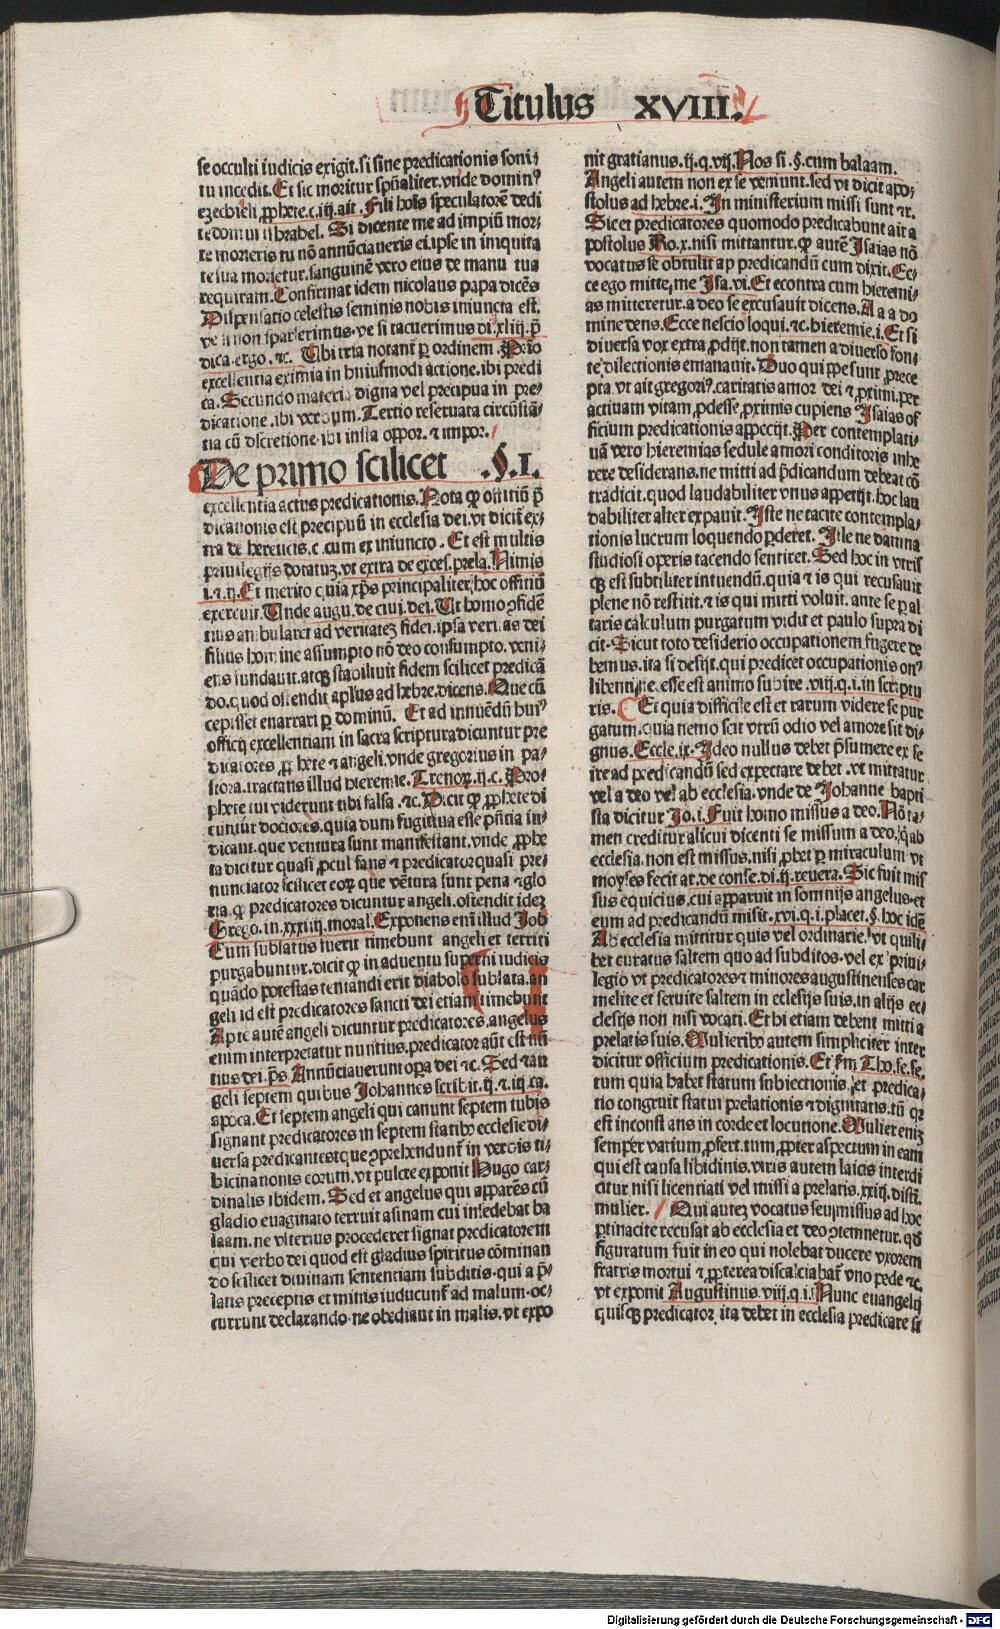 Titulus XVIII.
se occulti iudicis exigit. si sine predicationis soni⸗
tu incedit. Et sic moritur spũaliter. vnde dominꝰ
ezechieli ꝓphete. c. iij. ait. Fili hoĩs speculatorẽ dedi
te domui israhel. Si dicente me ad impiũ mor⸗
te morieris tu nõ annũciaueris ei. ipse in iniquita
te sua morietur. sanguinẽ vero eius de manu tua
requiram. Confirmat idem nicolaus papa dicẽs
Dispensatio celestis seminis nobis iniuncta est.
ve si non sparserimus. ve si tacuerimus di. xliij. p̃
dica. ergo. ⁊c. Ubi tria notant̃ ꝑ ordinem. Primo
excellentia eximia in huiusmodi actione. ibi predi
ca. Secundo materia digna vel precipua in pre⸗
dicatione. ibi verbum. Tertio reseruata circũstã⸗
tia cũ discretione. ibi insta oppor. ⁊ impor.
De primo scilicet .§. I.
excellentia actus predicationis. Nota ꝙ offitiũ p̃
dicationis est precipuũ in ecclesia dei. vt dicit ex⸗
tra de hereticis. c. cum ex iniuncto. Et est multis
priuilegijs dotatuꝫ. vt extra de exces. prela. Nimis
i. ⁊. ij. Et merito quia xp̃s principaliter hoc offitiũ
exercuit. Unde augu. de ciui. dei. Ut homo ꝯfidẽ
tius ambularet ad veritateꝫ fidei. ipsa veritas dei
filius homine assumpto nõ deo consumpto. veni⸗
ens fundauit. atqꝫ stabiliuit fidem scilicet predicã
do. quod ostendit apl̃us ad hebre. dicens. Que cũ
cepisset enarrari ꝑ dominũ. Et ad innuẽdũ huiꝰ
officij excellentiam in sacra scriptura dicuntur pre
dicatores ꝓphete ⁊ angeli. vnde gregorius in pa⸗
stora. tractans illud hieremie. Trenoꝝ. ij. c. Pro⸗
phete tui viderunt tibi falsa. ⁊c. Dicit ꝙ ꝓphete di
cuntur doctores. quia dum fugitiua esse pñtia in⸗
dicant. que ventura sunt manifestant. vnde ꝓphe
ta dicitur quasi ꝓcul fans ⁊ predicator quasi pre⸗
nunciator scilicet eoꝝ que vẽtura sunt pena ⁊ glo
ria. ꝙ predicatores dicuntur angeli. ostendit ideꝫ
Grego. in. xxxiiij. moral. Exponens em̃ illud Job
Cum sublatus fuerit timebunt angeli et territi
purgabuntur. dicit ꝙ in aduentu superni iudicis
quãdo potestas temtandi erit diabolo sublata. an
geli id est predicatores sancti dei etiam timebunt
Apte autẽ angeli dicuntur predicatores. angelus
enim interpretatur nuntius. predicator aũt est nũ
tius dei. p̃s Annũciauerunt opera dei ⁊c. Sed ⁊ an
geli septem quibus Johannes scribit. ij. ⁊. iij. ca.
apoca. Et septem angeli qui canunt septem tubis
signant predicatores in septem statibꝰ ecclesie di⸗
uersa predicantes. que ꝯprehendunt̃ in verbis tu⸗
bicinationis eorum. vt pulcre exponit Hugo car⸗
dinalis ibidem. Sed et angelus qui apparẽs cũ
gladio euaginato terruit asinam cui insedebat ba
laam. ne vlterius procederet signat predicatorem
qui verbo dei quod est gladius spiritus cõminan
do scilicet diuinam sententiam subditis. qui a p̃⸗
latis preceptis et minis inducunt̃ ad malum. oc⸗
currunt declarando. ne obediant in malis. vt expo
nit gratianus. ij. q. vij. Nos si. §. cum balaam.
Angeli autem non ex se veniunt. sed vt dicit apo⸗
stolus ad hebre. i. In ministerium missi sunt ⁊c.
Sic et predicatores quomodo predicabunt ait a
postolus Ro. x. nisi mittantur. ꝙ autẽ Isaias nõ
vocatus se obtulit ap predicandũ cum dixit. Ec⸗
ce ego mitte, me Isa. vi. Et econtra cum hieremi⸗
as mitteretur. a deo se excusauit dicens. A a a do
mine deus. Ecce nescio loqui. ⁊c. hieremie. i. Et si
diuersa vox extra ꝓdijt. non tamen a diuerso fon⸗
te dilectionis emanauit. Duo qui ꝑpe sunt ꝓprece
pta. vt ait gregoriꝰ. caritatis amor dei ⁊ ꝓximi. per
actiuam vitam ꝓdesse ꝓximis cupiens Isaias of
ficium predicationis appecijt. Per contemplati⸗
uã vero hieremias sedule amori conditoris inhe
rere desiderans. ne mitti ad p̃dicandum debeat cõ
tradicit. quod laudabiliter vnus appetijt. hoc lau
dabiliter alter expauit. Iste ne tacite contempla⸗
tionis lucrum loquendo ꝑderet. Ille ne damna
studiosi operis tacendo sentiret. Sed hoc in vtris
qꝫ est subtiliter intuendũ. quia ⁊ is qui recusauit
plene nõ restitit. ⁊ is qui mitti voluit. ante se ꝑ al
taris calculum purgatum vidit et paulo supra di
cit. Sicut toto desiderio occupationem fugere de
bemus. ita si desijt. qui predicet occupationis onꝰ
libenti ne esse est animo subire. viij. q. i. in scriptu
ris. Et quia difficile est et rarum videre se pur
gatum. Quia nemo scit vtrũ odio vel amore sit di⸗
gnus. Eccle. ix. Ideo nullus debet p̃sumere ex se
ire ad predicandũ sed expectare debet. vt mittatur
vel a deo vel ab ecclesia. vnde de Johanne bapti
sta dicitur Jo. i. Fuit homo missus a deo. Nõ ta⸗
men creditur alicui dicenti se missum a deo. ꝙ ab
ecclesia. non est missus. nisi ꝓbet ꝑ miraculum vt
moyses fecit ar. de conse. di. ij. reuera. Sic fuit mis
sus equicius. cui apparuit in somnijs angelus. et
eum ad predicandũ misit. xvi. q. i. placet. §. hoc idẽ
Ab ecclesia mittitur quis vel ordinarie. vt quili⸗
bet curatus saltem quo ad subditos. vel ex priui⸗
legio vt predicatores ⁊ minores augustinenses car
melite et seruite saltem in ecclesijs suis. in alijs ec⸗
clesijs non nisi vocati. Et hi etiam debent mitti a
prelatis suis. Mulieribꝰ autem simpliciter inter
dicitur officium predicationis. Et f̃m Tho. se. se.
tum quia habet statum subiectionis. et predica⸗
tio congruit statui prelationis ⁊ dignitatis. tũ qꝛ
est inconstans in corde et locutione. Mulier eniꝫ
semper varium ꝓfert. tum. ꝓpter aspectum in eam
qui est causa libidinis. viris autem laicis interdi
citur nisi licentiati vel missi a prelatis. xxiij. disti.
mulier. Qui auteꝫ vocatus seu missus ad hoc
ꝑtinacite recusat ab ecclesia et deo ꝯtemnetur. qđ
figuratum fuit in eo qui nolebat ducere vxorem
fratris mortui ⁊ ꝓpterea discalciabat̃ vno pede ⁊c.
vt exponit Augustinus. viij. q. i. Nunc euangelij
quisqꝫ predicator. ita debet in ecclesia predicare si
Digitalisierung gefördert durch die Deutsche Forschungsgemeinschaft - DFG